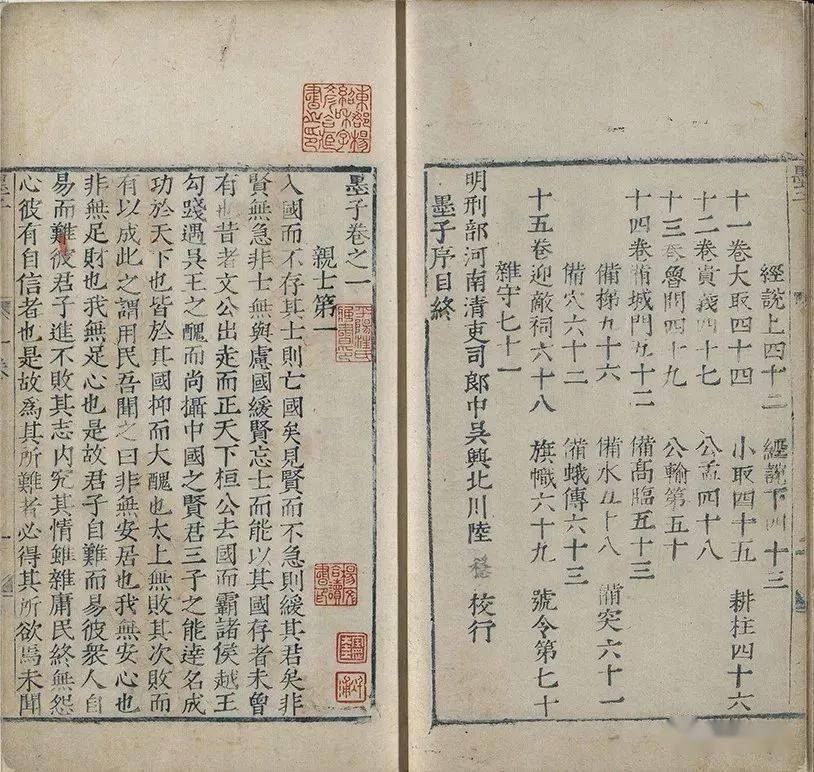 經說上四十二 經說下四十三
十一卷大取四十四 小取四十五 耕柱四十六
十二卷貴義四十七 公孟四十八
十三卷魯問四十九 公輸第五十
十四卷備城門五十二 備高臨五十三
備梯五十六 備水五十八 備突六十一
備穴六十二 備蛾傳六十三
十五卷迎敵祠六十八 旗幟六十九 號令第七十
雜守七十一
明刑部河南清吏司郎中吳興北川陸穩校行
墨子序目終
墨子卷之一
親士第一
入國而不存其士則亡國矣見賢而不急則緩其君矣非
賢無急非士無與慮國緩賢忘士而能以其國存者未曾
有也昔者文公出走而正天下桓公去國而霸諸侯越王
勾踐遇吳王之醜而尚攝中國之賢君三子之能達名成
功於天下也皆於其國抑而大醜也太上無敗其次敗而
有以成此之謂用民吾聞之曰非無安居也我無安心也
非無足財也我無足心也是故君子自難而易彼衆人自
易而難彼君子進不敗其志內究其情雖雜庸民終無怨
心彼有自信者也是故爲其所難者必得其所欲焉未聞
平陽汪氏藏書印